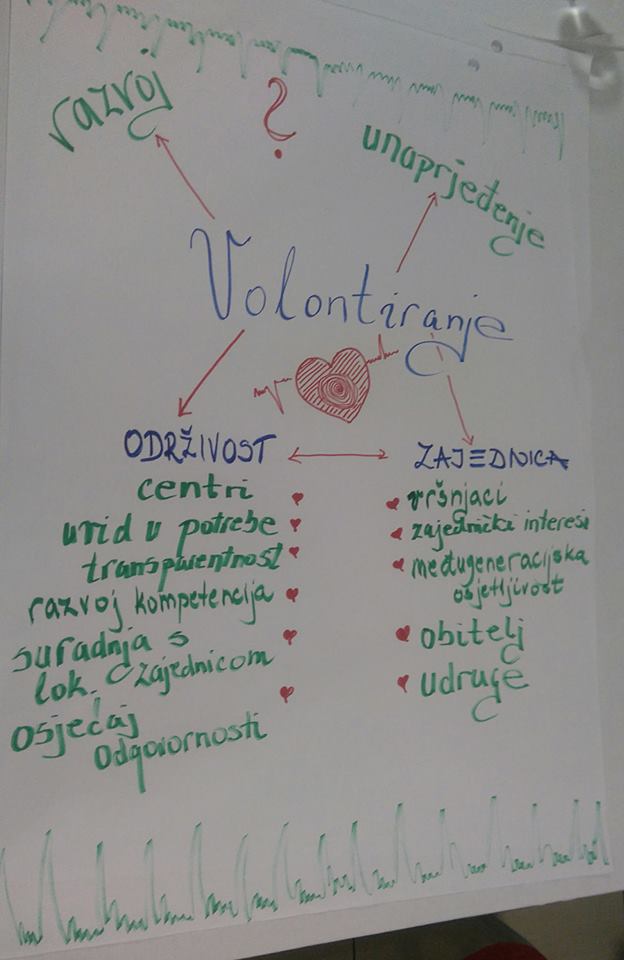 razvoj
?
unaprjeđenje
Volontiranje
ODRŽIVOST
centri
uvid u potrebe
transparentnost
razvoj kompetencija
suradnja s
lok. zajednicom
osjećaj
odgovornosti
ZAJEDNICA
vršnjaci
zajednički interesi
međugeneracijska
osjetljivost
obitelj
udruge